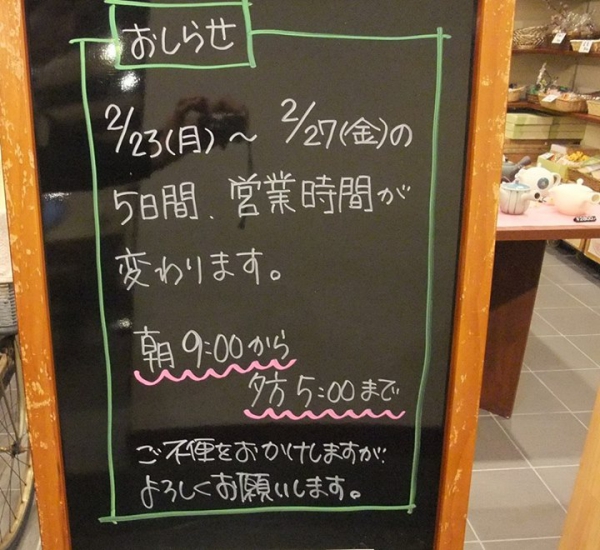 おしらせ
2/23(月)～ 2/27(金)の
5日間、営業時間が
変わります。
朝9:00から
夕方5:00まで
ご不便をおかけしますが、
よろしくお願いします。